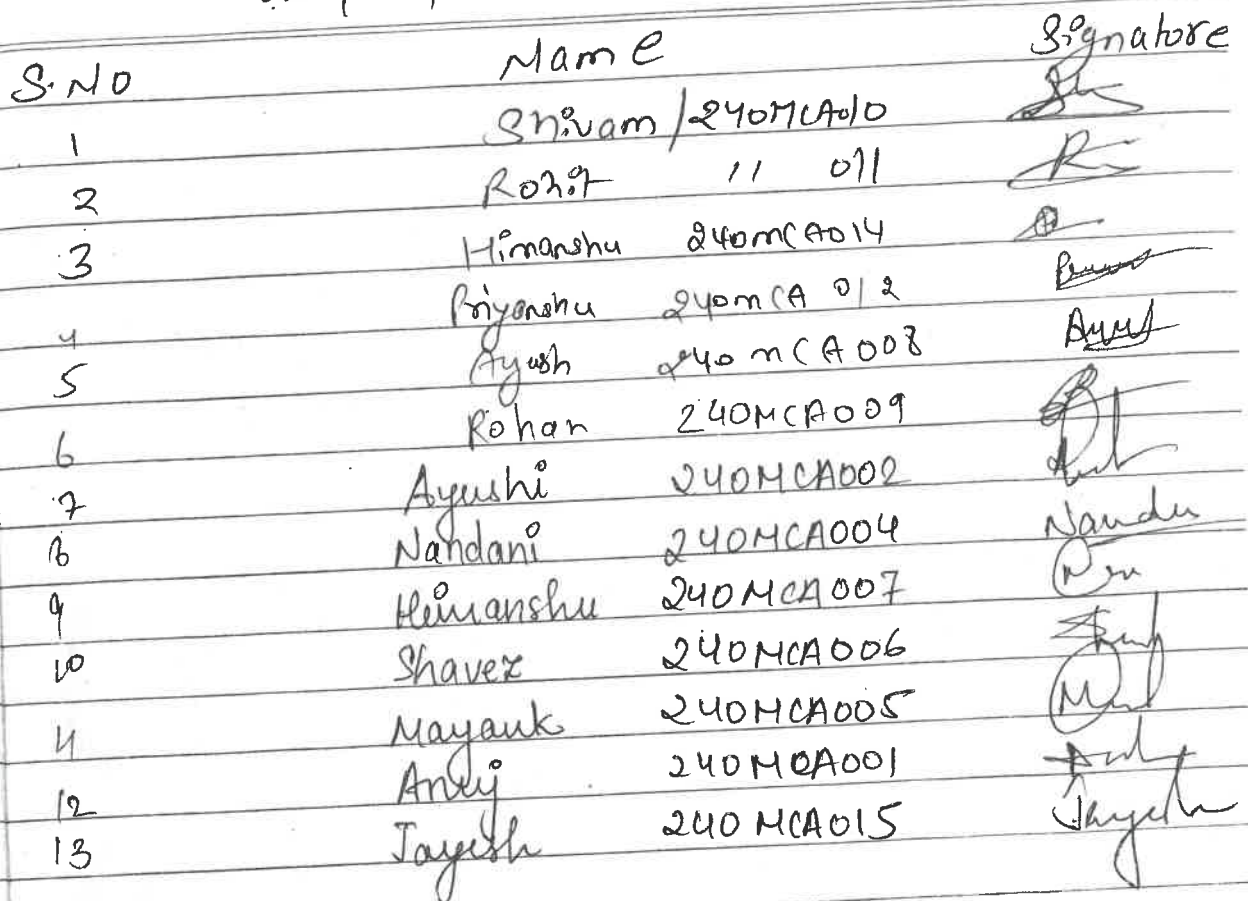 S.No Name Signature
1 Shivam / 240MCA010
2 Rohit 11 011
3 Himanshu 240MCA014
4 Priyanshu 240MCA 012
5 Ayush 240MCA008 Ayush
6 Rohan 240MCA009
7 Ayushi 240MCA002
8 Nandani 240MCA004 Nandu
9 Himanshu 240MCA007
10 Shavez 240MCA006
11 Mayank 240MCA005
12 240MCA001
13 Jayesh 240MCA015 Jayesh